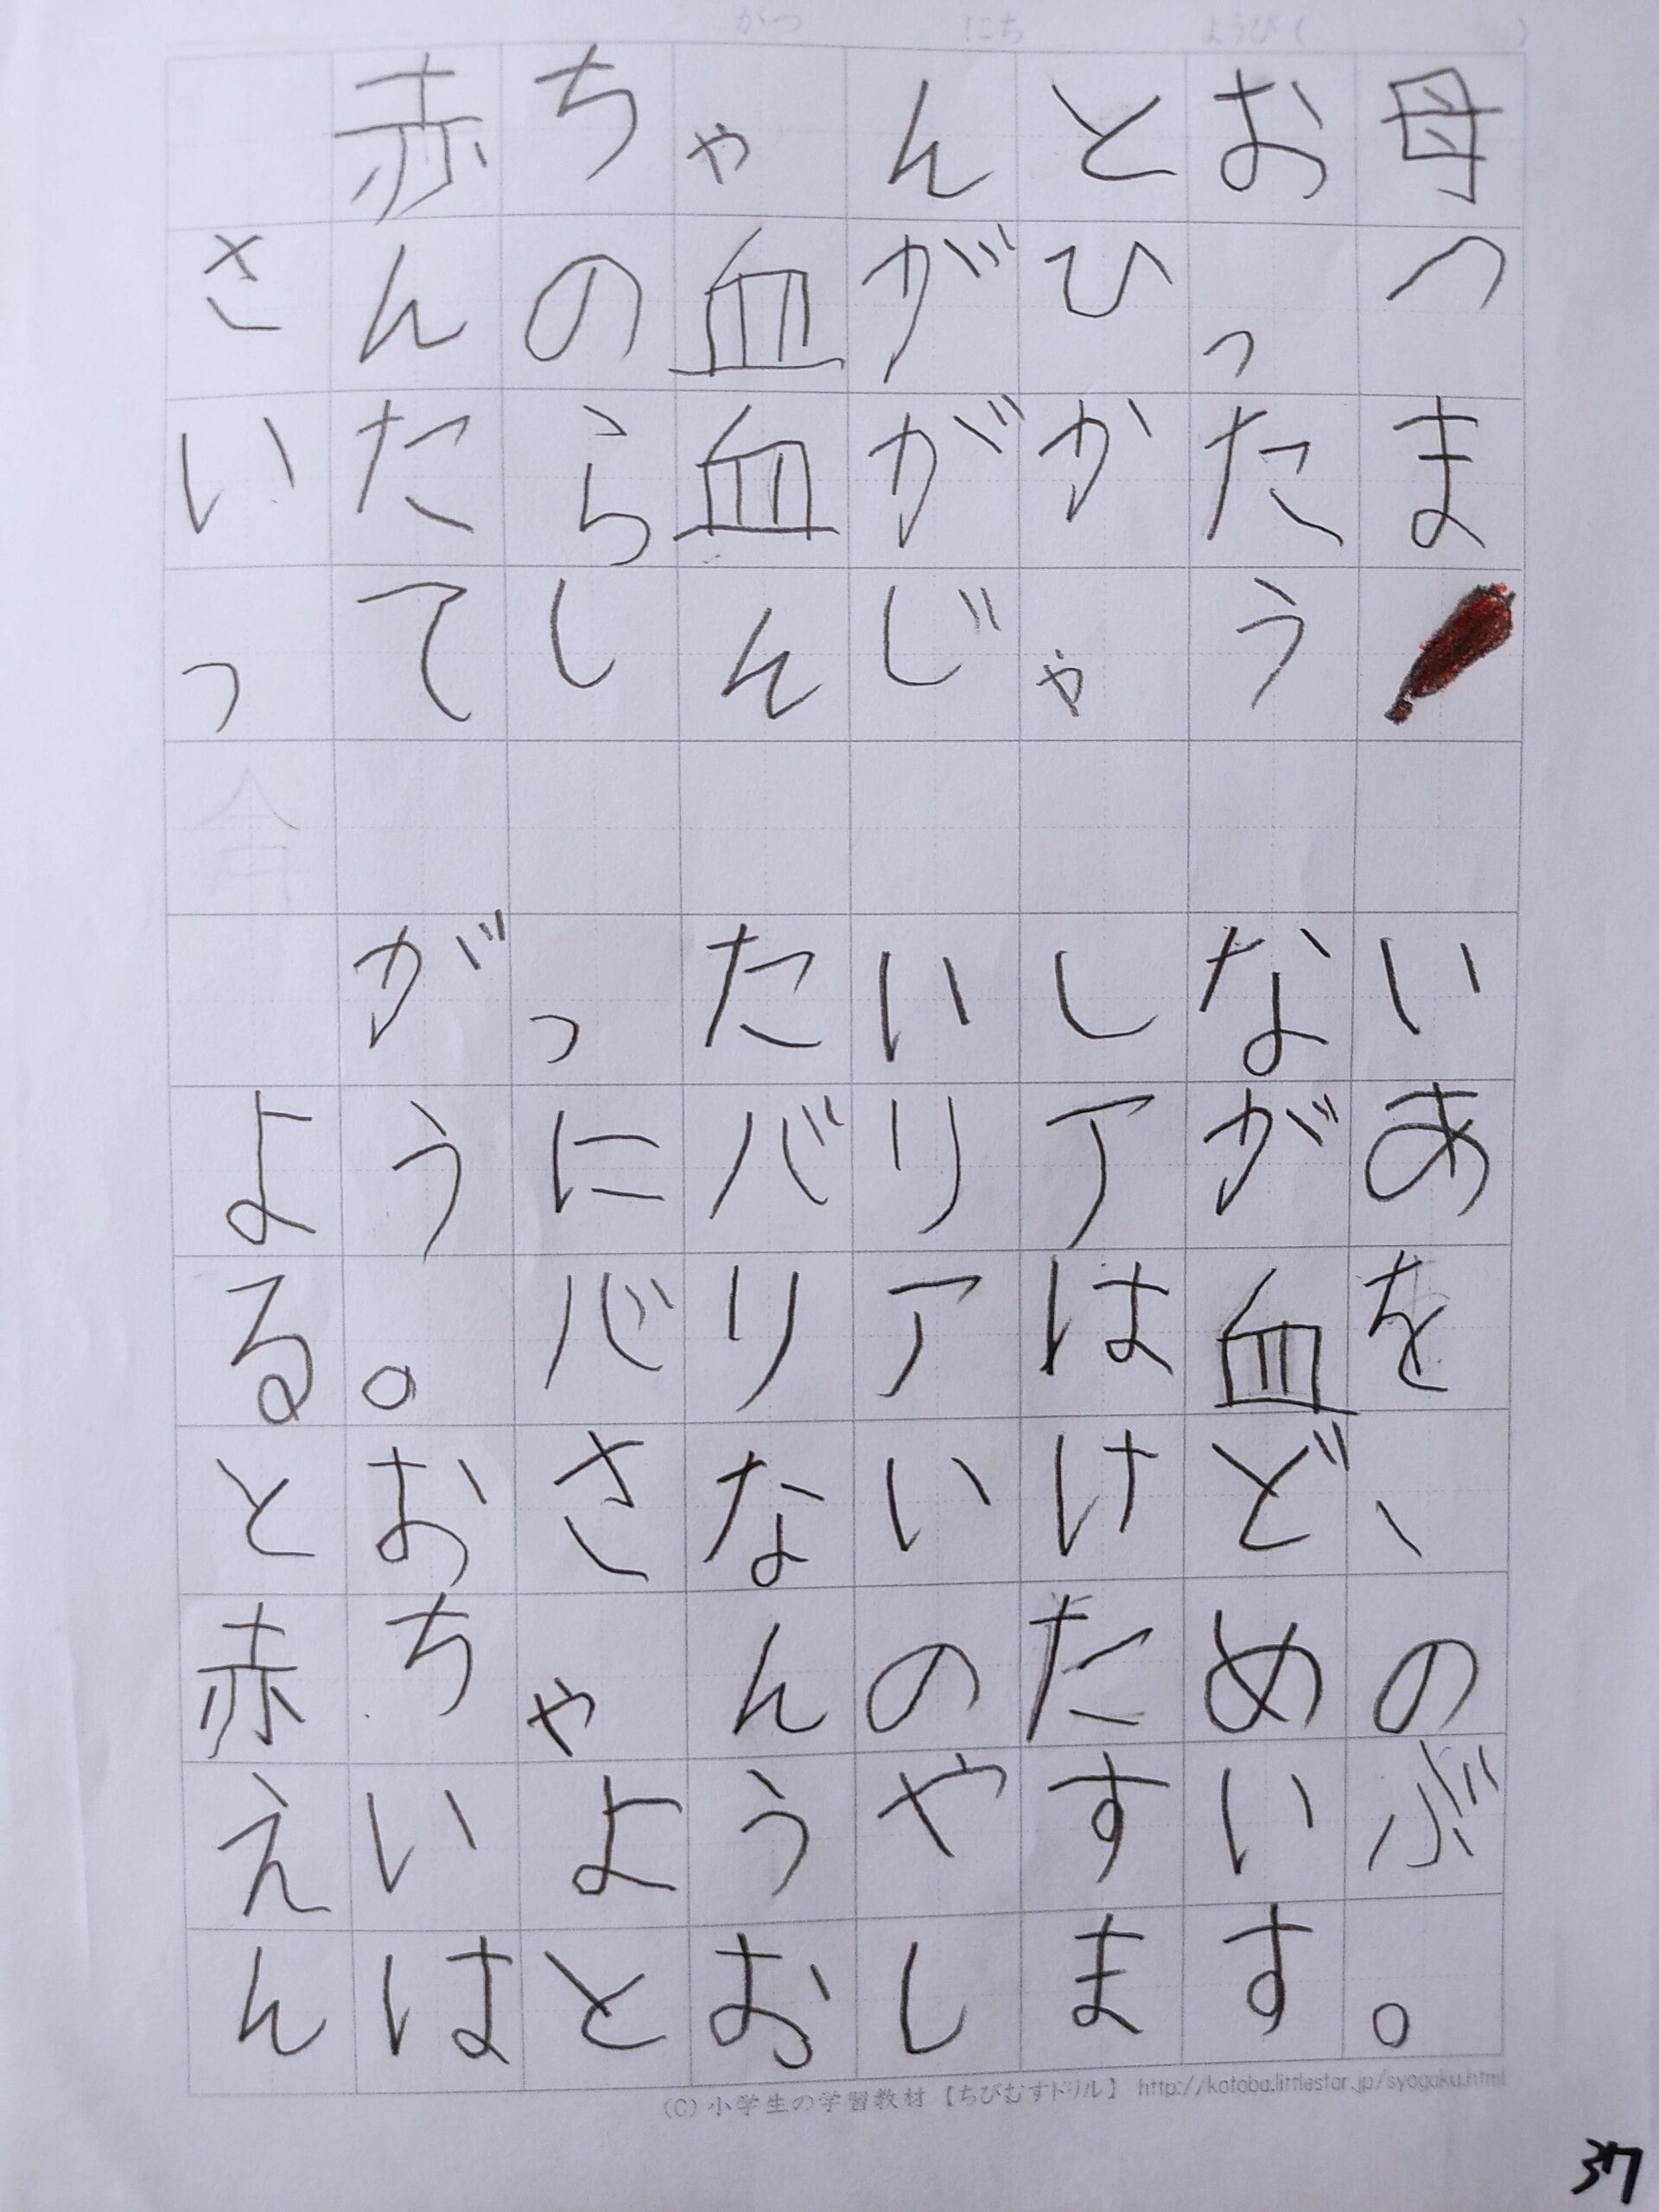 がつ にち ようび( )
赤ちゃんとお母
さんの血がひっつ
いたら血がかたま
ってしんじゃう
がったいしない
ようにバリアがあ
る。バリアは血を
とおさないけど、
赤ちゃんのための
えいようやすいぶ
んはとおします。
(C) 小学生の学習教材【ちびむすドリル】 http://kotoba.littlestar.jp/syogaku.html
37